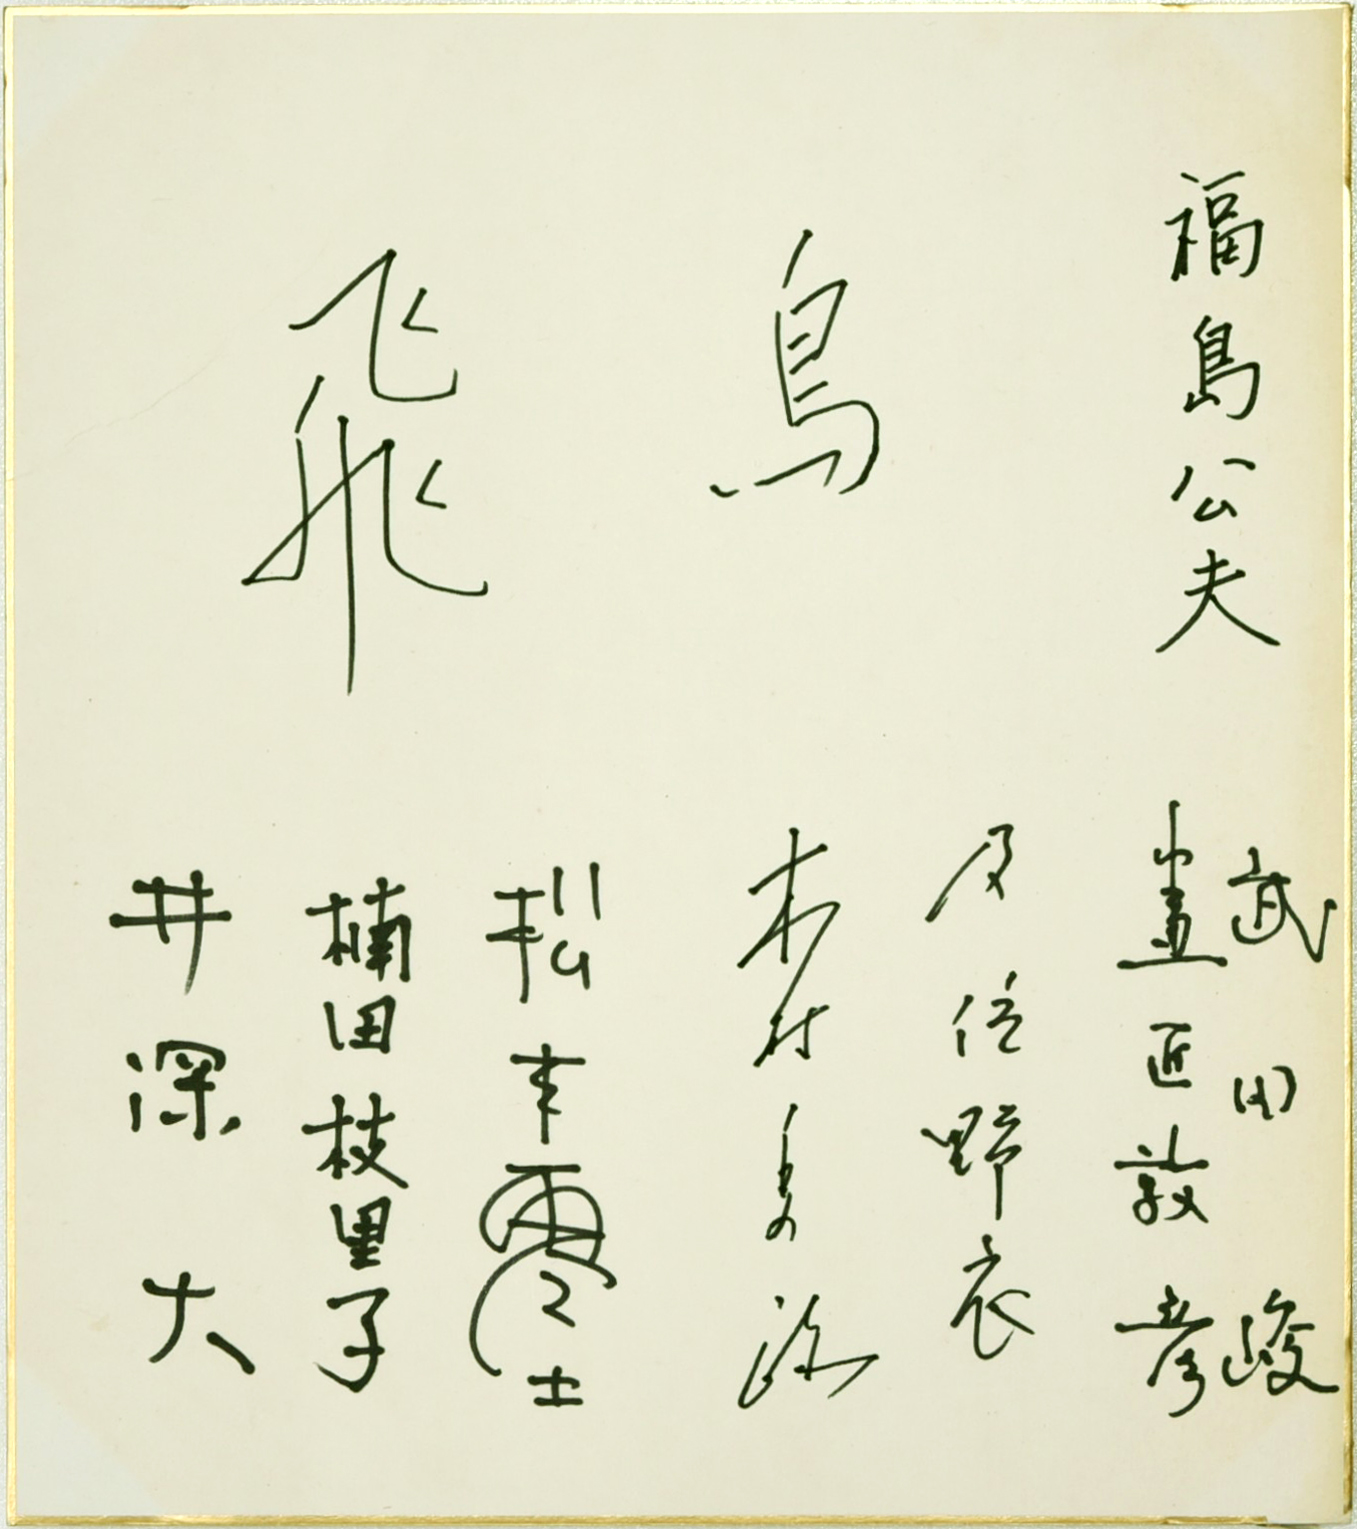 福島公夫
鳥
飛
武田峻
敦彦
及位野衣
木村秀政
松本零士
楠田枝里子
井深大